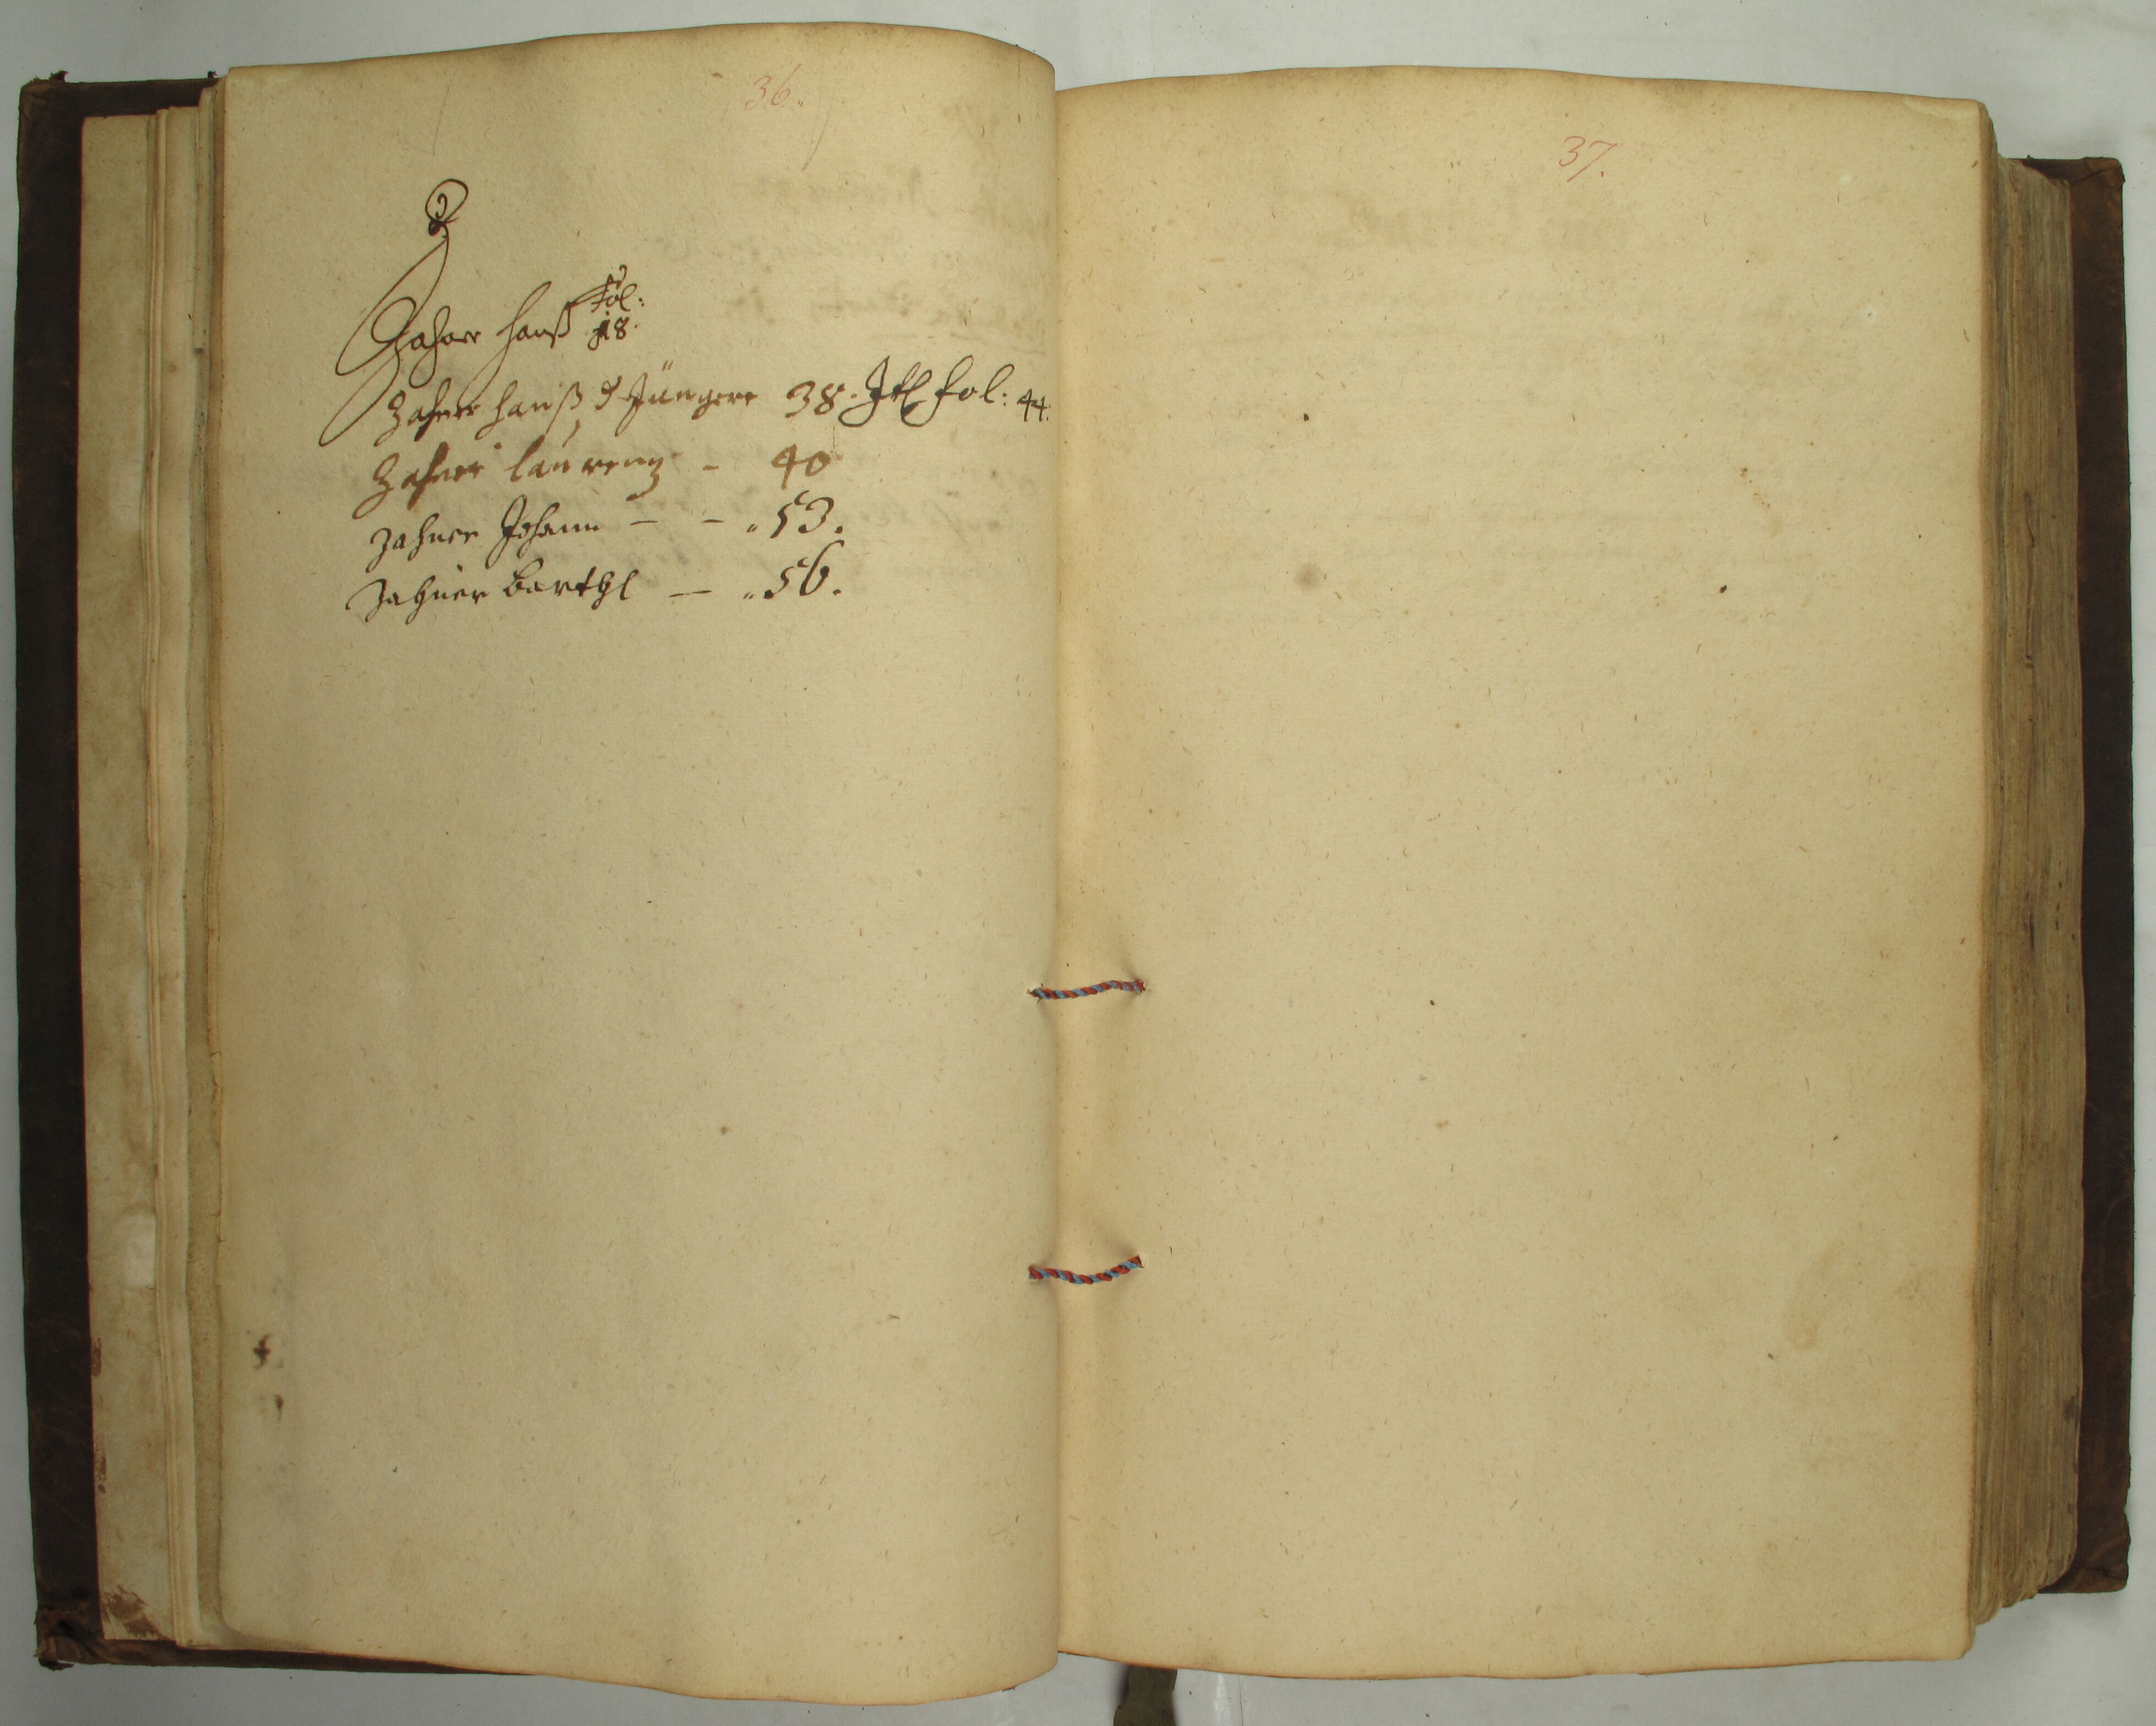 36.
Z
Fol:
Zahner Hanß 18.
Zahner Hanß d Jüngere 38. Itl fol: 44.
Zahner Laurenz - 40
Zahner Johann - - „ 53.
Zahner Barthl - „ 56.
37.